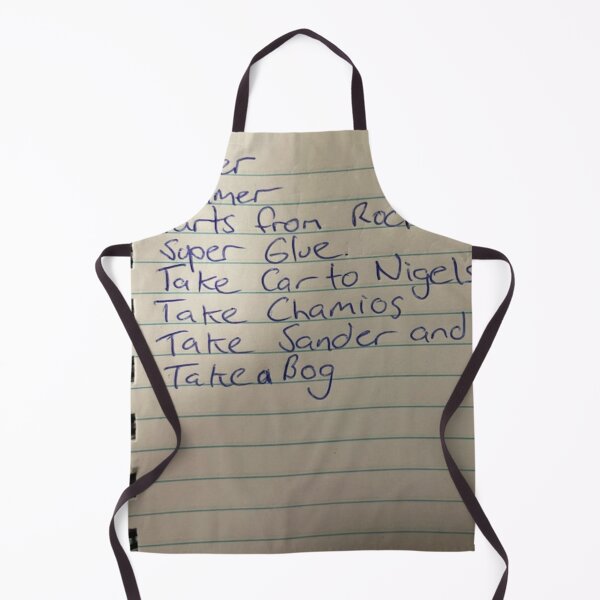 er
mer
arts from Roc
Super Glue.
Take Car to Nigels
Take Chamios
Take Sander and
Take a Bog